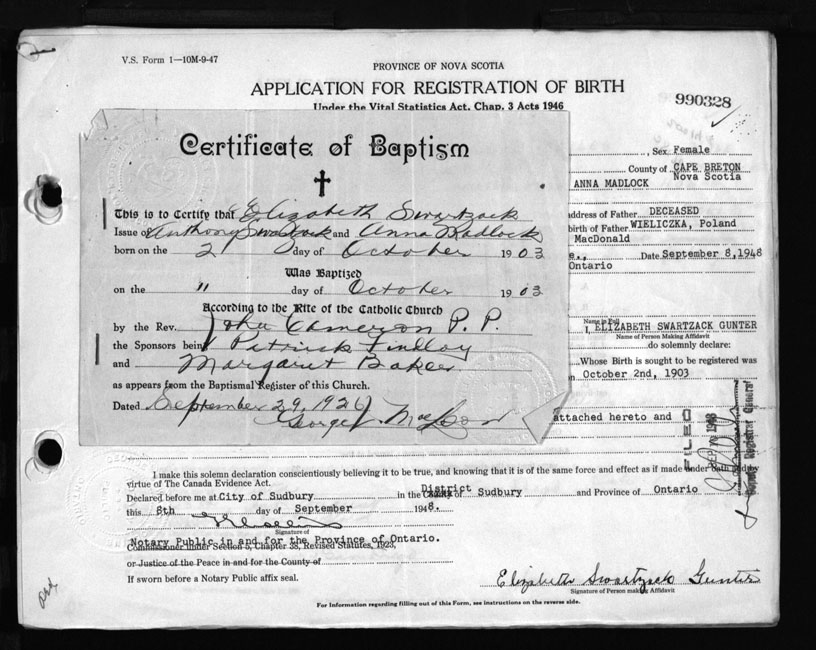 V.S. Form 1—10M-9-47
PROVINCE OF NOVA SCOTIA
APPLICATION FOR REGISTRATION OF BIRTH
Under the Vital Statistics Act. Chap. 3 Acts 1946
990328
Certificate of Baptism
This is to Certify that Elizabeth Swartzack
Issue of Anthony Swartzack and Anna Radlock
born on the 2 day of October 1903
Was Baptized
on the " day of October 1903
According to the Rite of the Catholic Church
by the Rev. John Cameron P. P.
the Sponsors being Patrick Findlay
and Margaret Baker
as appears from the Baptismal Register of this Church.
Dated September 29, 1926
George
Sex Female
County of CAPE BRETON
Nova Scotia
ANNA MADLOCK
address of Father DECEASED
birth of Father WIELICZKA, Poland
MacDonald
Date September 8, 1948
Ontario
Name in Full
I, ELIZABETH SWARTZACK GUNTER
Name of Person Making Affidavit
do solemnly declare:
Whose Birth is sought to be registered was
October 2nd, 1903
attached hereto and
FILED
I make this solemn declaration conscientiously believing it to be true, and knowing that it is of the same force and effect as if made under oath and by
virtue of The Canada Evidence Act.
Declared before me at City of Sudbury in the District of Sudbury and Province of Ontario
this 8th day of September 1948.
Signature of
Notary Public in and for the Province of Ontario.
Commissioner under Section 5, Chapter 38, Revised Statutes, 1923,
or Justice of the Peace in and for the County of
If sworn before a Notary Public affix seal.
Elizabeth Swartzack Gunter
Signature of Person making Affidavit
For Information regarding filling out of this Form, see instructions on the reverse side.